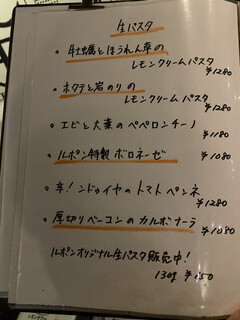 生パスタ
牡蠣とほうれん草の
レモンクリームパスタ
¥1280
ホタテと岩のりの
レモンクリームパスタ
¥1280
エビと大葉のペペロンチーノ
¥1180
ルポン特製ボロネーゼ ¥1080
辛!ンドゥイヤのトマトペンネ
¥1280
厚切りベーコンのカルボナーラ
¥1080
ルポンオリジナル生パスタ販売中!
130g ¥150